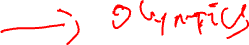 → Olympics